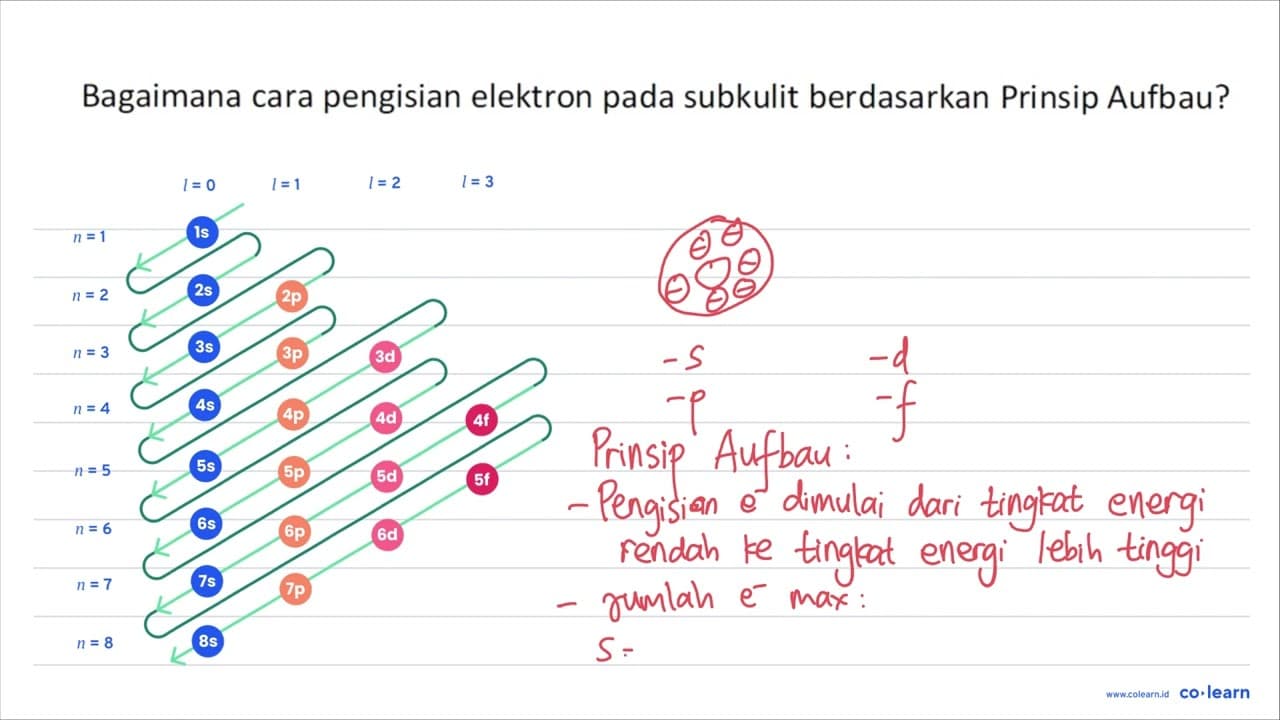 Bagaimana cara pengisian elektron pada subkulit berdasarkan Prinsip Aufbau?
l = 0 l = 1 l = 2 l = 3
n = 1 1s
n = 2 2s 2p
n = 3 3s 3p 3d
n = 4 4s 4p 4d 4f
n = 5 5s 5p 5d 5f
n = 6 6s 6p 6d
n = 7 7s 7p
n = 8 8s
- s - d
- p - f
Prinsip Aufbau :
- Pengisian e⁻ dimulai dari tingkat energi
rendah ke tingkat energi lebih tinggi
- Jumlah e⁻ max :
s =
www.colearn.id co·learn